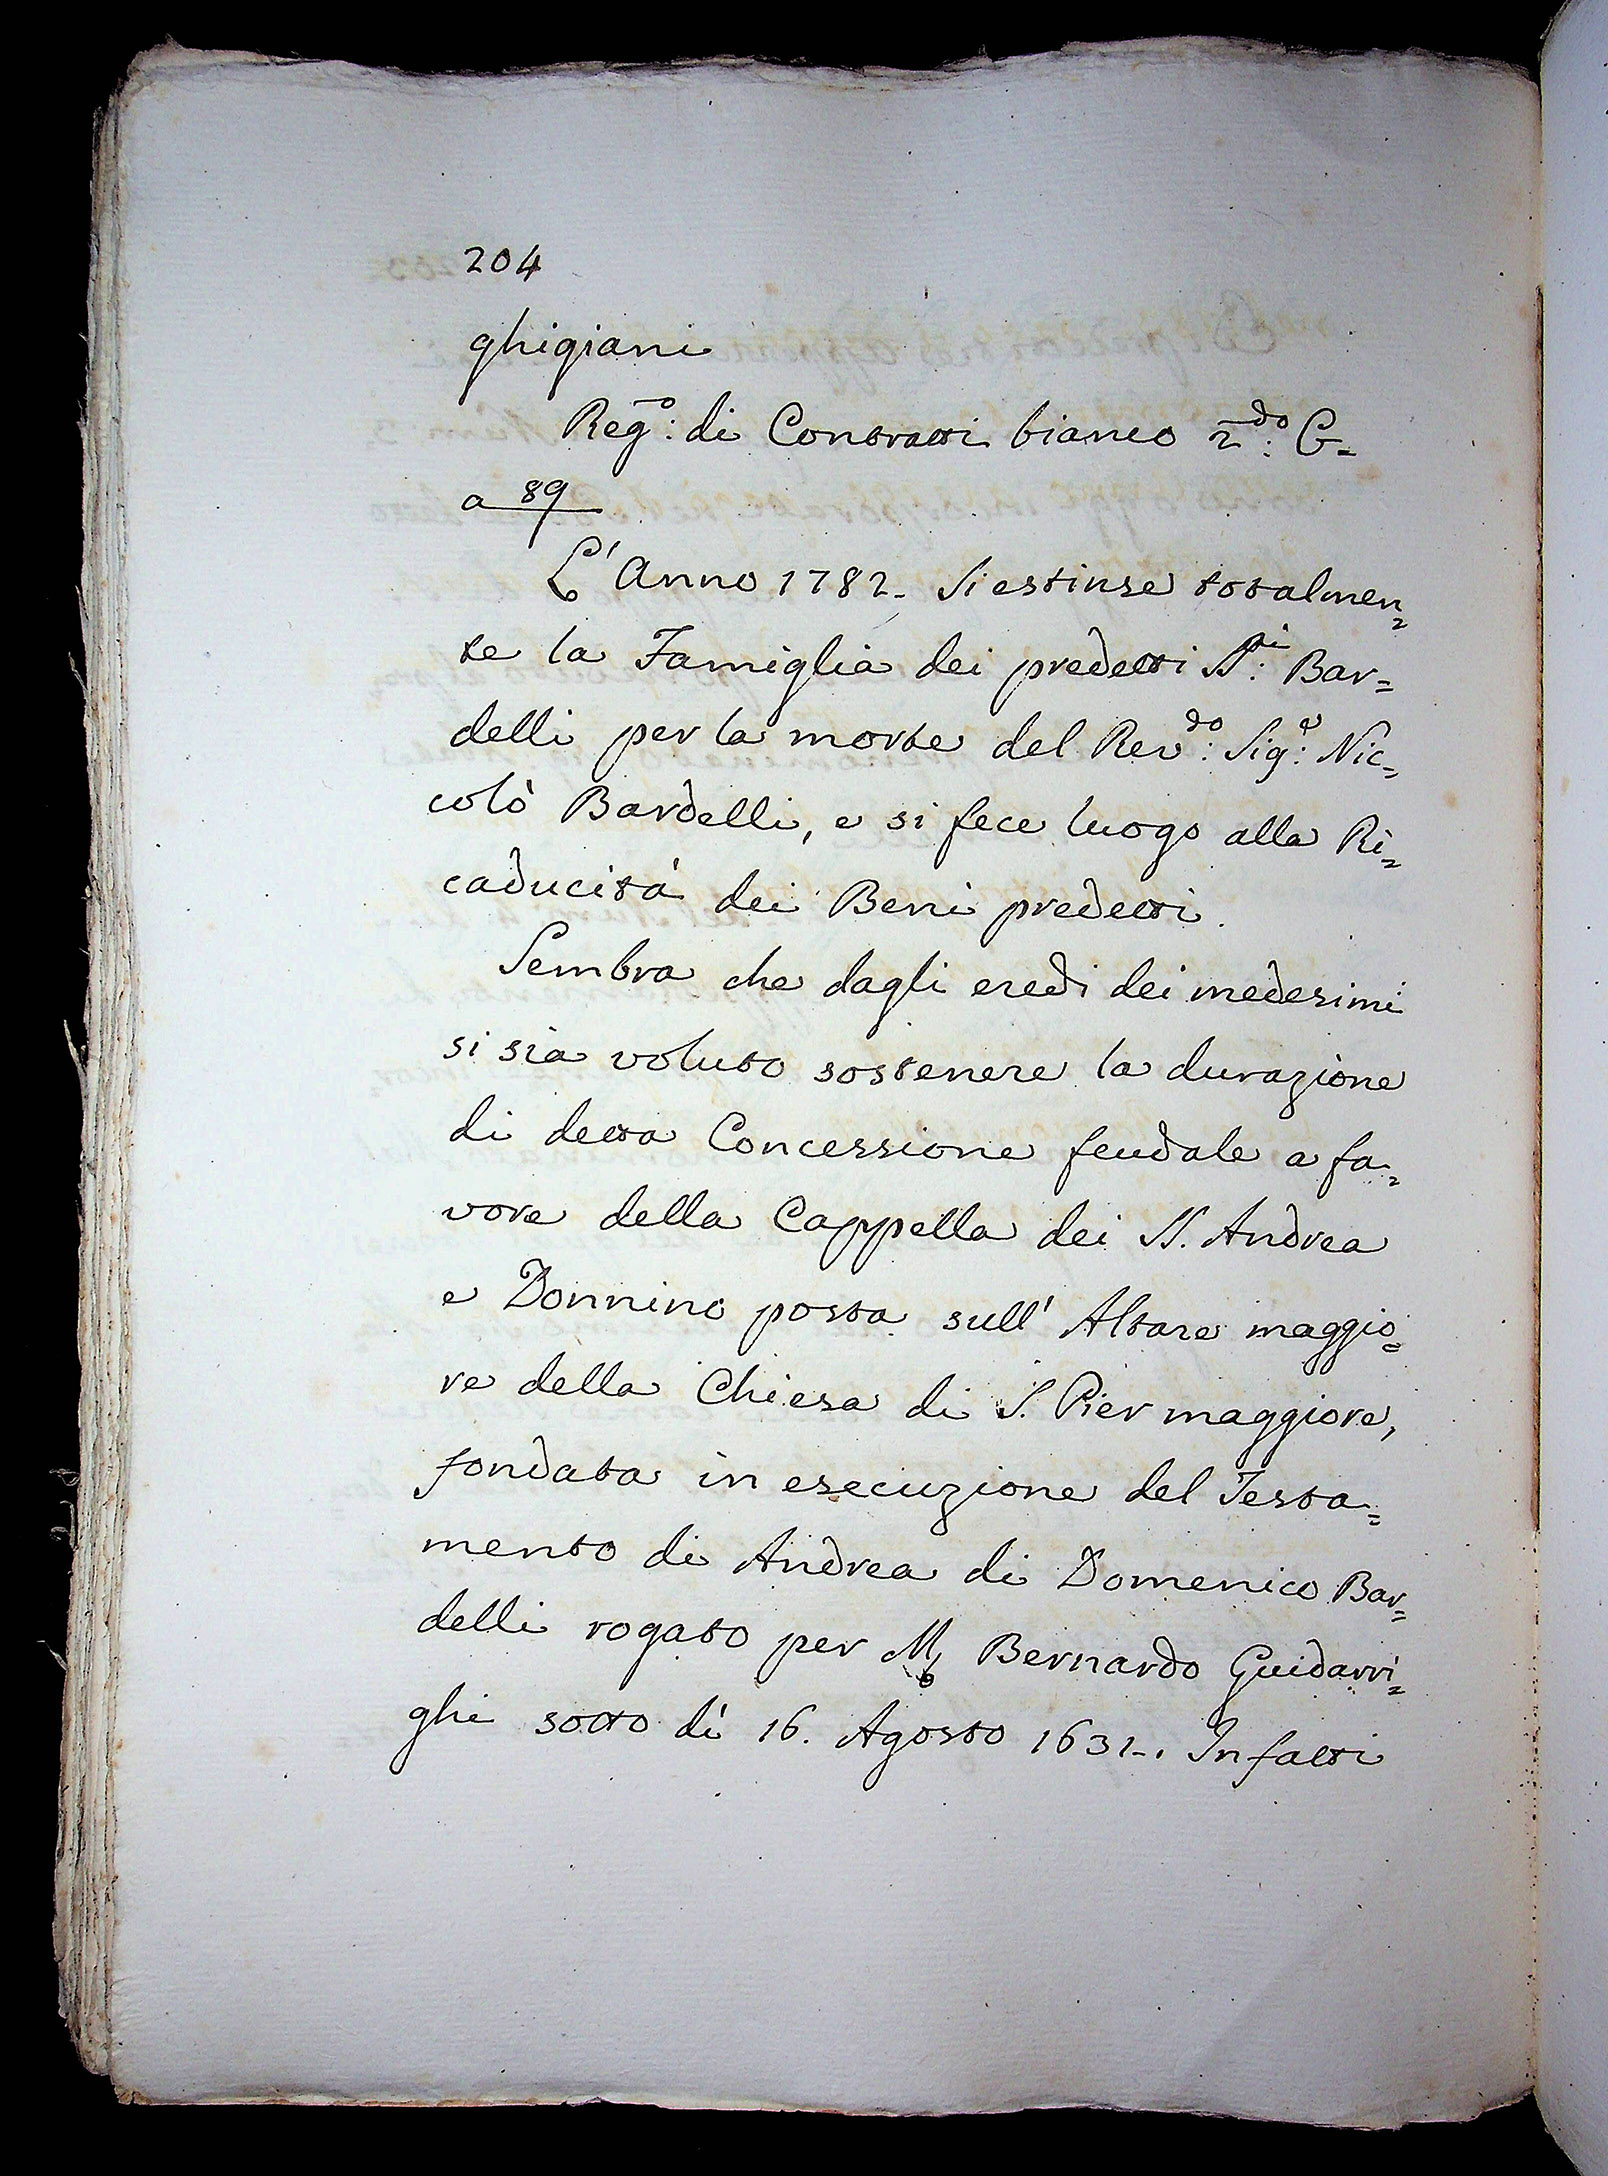 204
ghigiani
Reg.ro: di Contratti bianco 2.do: C=
a 89
L'Anno 1782. Si estinse totalmen=
te la Famiglia dei predetti SS.ri: Bar=
delli per la morte del Rev.do: Sig.e: Nic=
colò Bardelli, e si fece luogo alla Ri=
caducità dei Beni predetti.
Sembra che dagli eredi dei medesimi
si sia voluto sostenere la durazione
di detta Concessione feudale a fa=
vore della Cappella dei SS. Andrea
e Donnino posta sull' Altare maggio=
re della Chiesa di S. Pier maggiore,
fondata in esecuzione del Testa=
mento di Andrea di Domenico Bar=
delli rogato per M Bernardo Guidarri=
ghi sotto dì 16. Agosto 1631.. Infatti